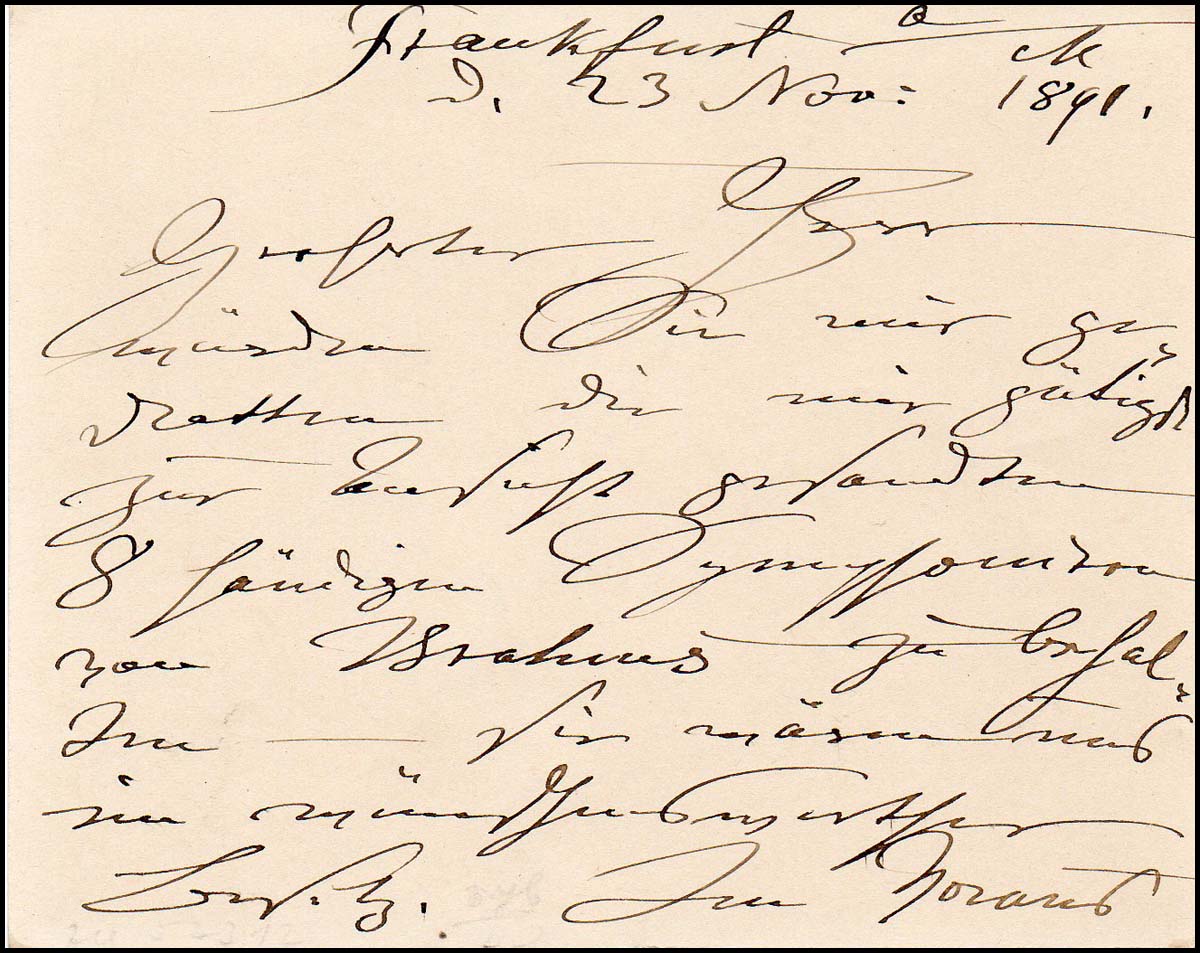 Frankfurt a/M
d. 23 Nov: 1891.
Geehrter Herr
Würden Sie mir ge-
statten die mir gütigst
zur Ansicht gesandten
8 händigen Symphonien
von Brahms zu behal-
ten — sie wären uns
ein wünschenswerther
Besitz. Im Voraus